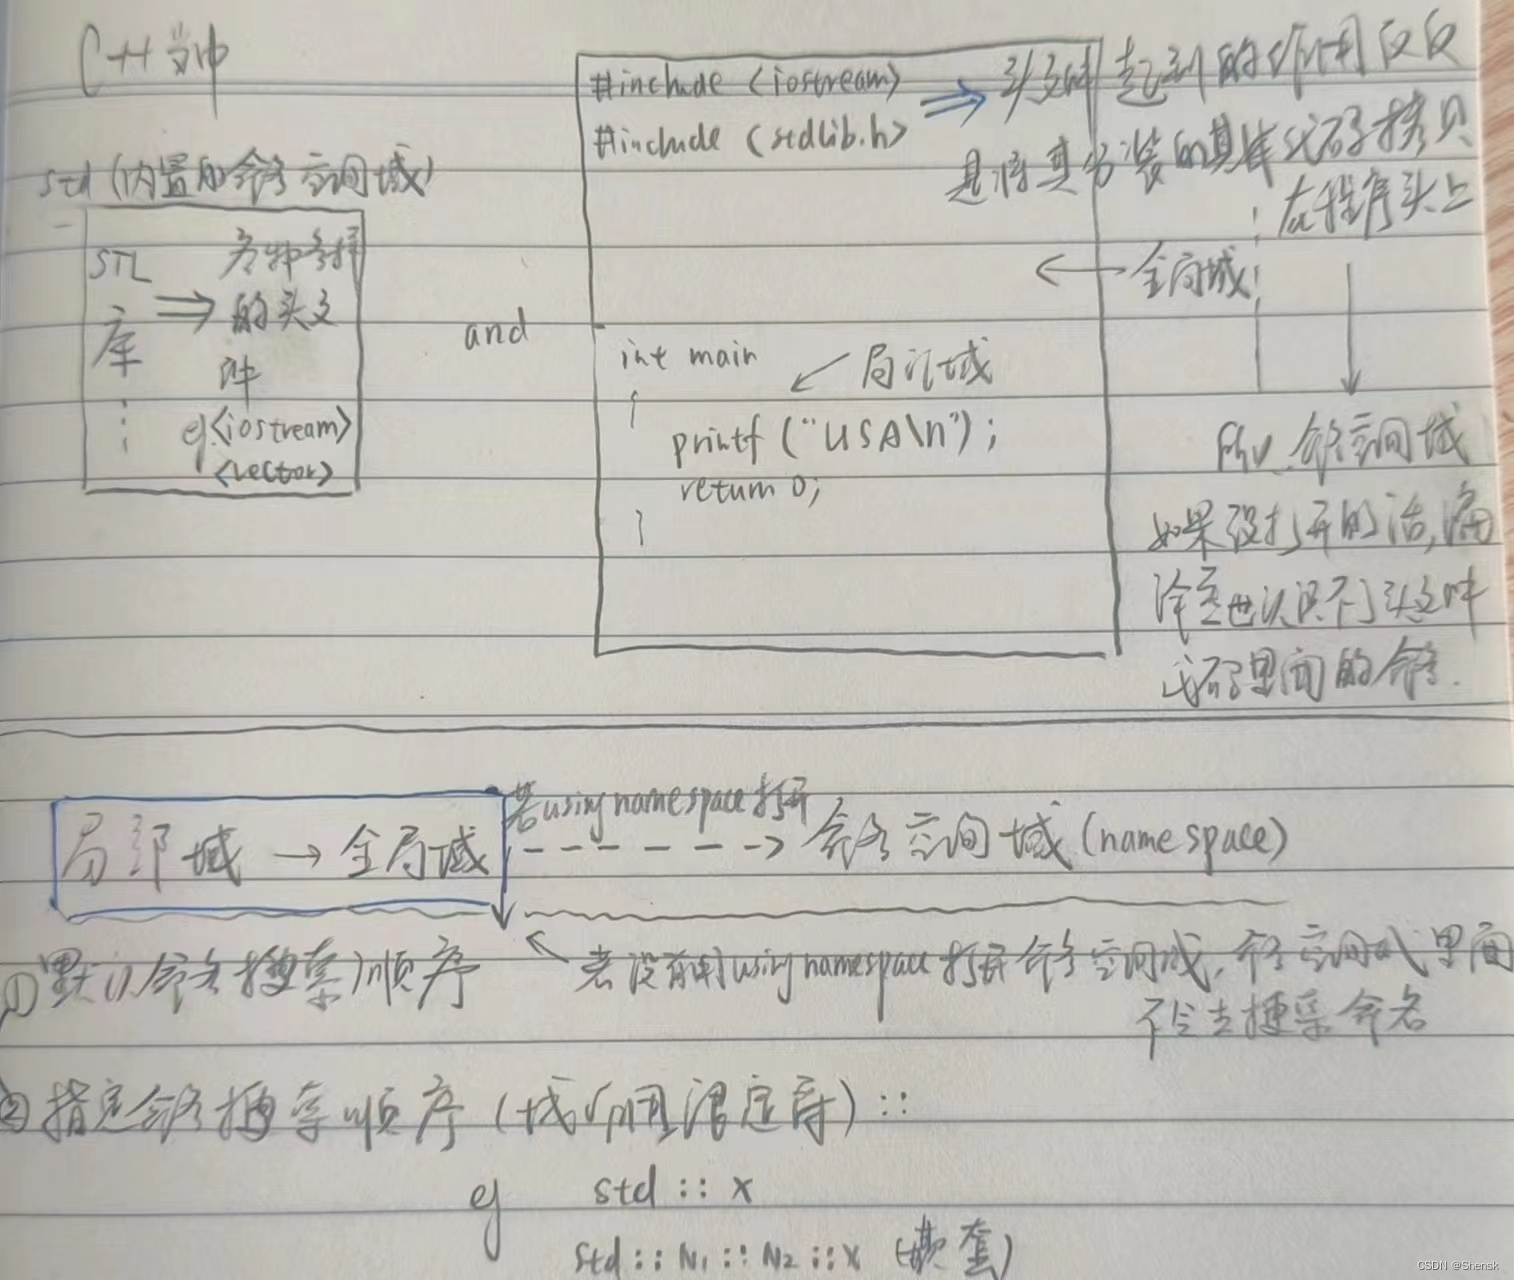 C++当中
std(内置的命名空间域)
STL
库
⋮
⇒
各种各样
的头文
件
eg<iostream>
<vector>
and
#include <iostream>
#include <stdlib.h>
int main
{
printf ("USA\n");
return 0;
}
← 局部域
⇒ 头文件起到的作用仅仅
是将其封装的其库代码拷贝
在程序头上
← 全局域
所以 命名空间域
如果没打开的话,编
译器也识别不了头文件
代码里面的命名.
局部域 → 全局域
若using namespace打开
------> 命名空间域(namespace)
①默认命名搜索顺序
← 若没有用using namespace打开命名空间域,命名空间域里面
不会去搜索命名
②指定命名搜索顺序(域作用限定符) ::
eg std :: x
std :: N1 :: N2 :: x (嵌套)
CSDN @Shensk